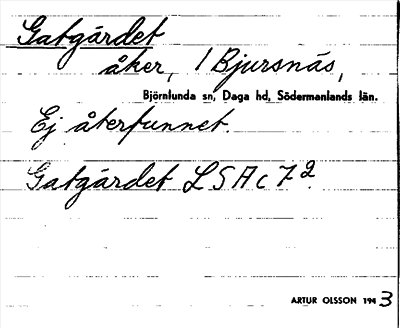 Gatgärdet
åker, 1 Bjursnäs,
Björnlunda sn, Daga hd, Södermanlands län.
Ej återfunnet.
Gatgärdet LSA c 7 2.
ARTUR OLSSON 1943